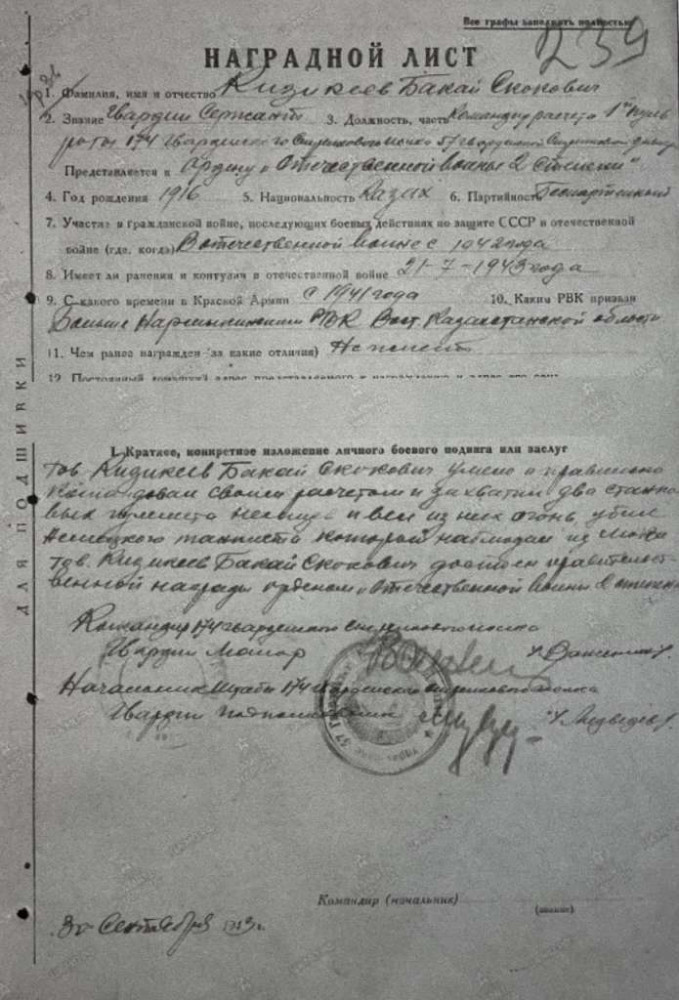 Все графы заполнять полностью
239
НАГРАДНОЙ ЛИСТ
1. Фамилия, имя и отчество Кидикеев Бакай Скокович
2. Звание Гвардии Сержант 3. Должность, часть Командир расчета 1й пуль
роты 174 Гвардейского Стрелкового полка 57 гвардейской Стрелковой дивизии
Представляется к Ордену „Отечественной войны 2 степени"
4. Год рождения 1916 5. Национальность Казах 6. Партийность Беспартийный
7. Участие в гражданской войне, последующих боевых действиях по защите СССР и отечественной
войне (где, когда) В отечественной войне с 1942 года
8. Имеет ли ранения и контузии в отечественной войне 21-7-1943 года
9. С какого времени в Красной Армии с 1941 года 10. Каким РВК призван
Больше Нарымским РВК Вост. Казахстанской области
11. Чем ранее награжден (за какие отличия) Не имеет
12. Постоянный домашний адрес представляемого к награждению и адрес его семьи
ДЛЯ ПОДШИВКИ
I. Краткое, конкретное изложение личного боевого подвига или заслуг
Тов. Кидикеев Бакай Скокович умело и правильно
командовал своим расчетом и захватил два станко
вых пулемета немецких и вел из них огонь, убил
немецкого танкиста который наблюдал из люка
Тов. Кидикеев Бакай Скокович достоин правительст-
венной награды орденом „Отечественной войны 2 степени
Командир 174 гвардейского стрелкового полка
Гвардии Майор
Начальник штаба 174 гвардейского стрелкового полка
Гвардии подполковник /Медведев/.
Командир (начальник)
(звание)
30 Сентября 1943 г.